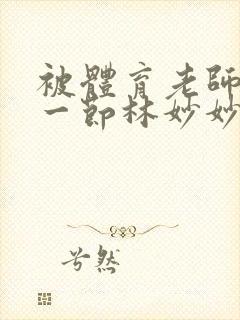 被體育老師
一節林妙妙
兮然